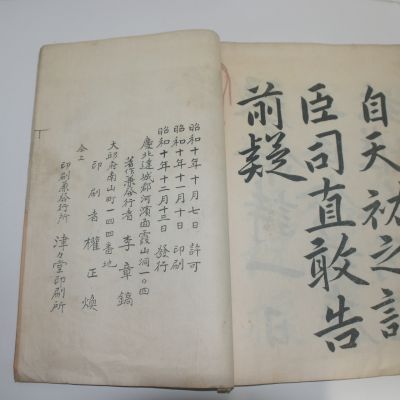 自天祐之
臣司直敢告
前疑
昭和十年十月七日 許可
昭和十年十一月十日 印刷
昭和十年十二月十三日 發行
慶北達城郡河濱面霞山洞一〇四
著作兼發行者 李章鎬
大邱府南山町一四四番地
印刷者 權正煥
仝上
印刷兼發行所 津々堂印刷所